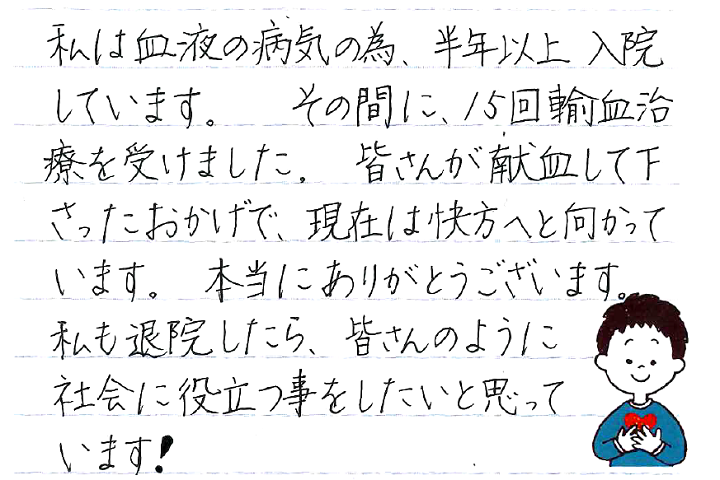 私は血液の病気の為、半年以上 入院
しています。 その間に、15回輸血治
療を受けました。 皆さんが献血して下
さったおかげで、現在は快方へと向かって
います。 本当にありがとうございます。
私も退院したら、皆さんのように
社会に役立つ事をしたいと思って
います!